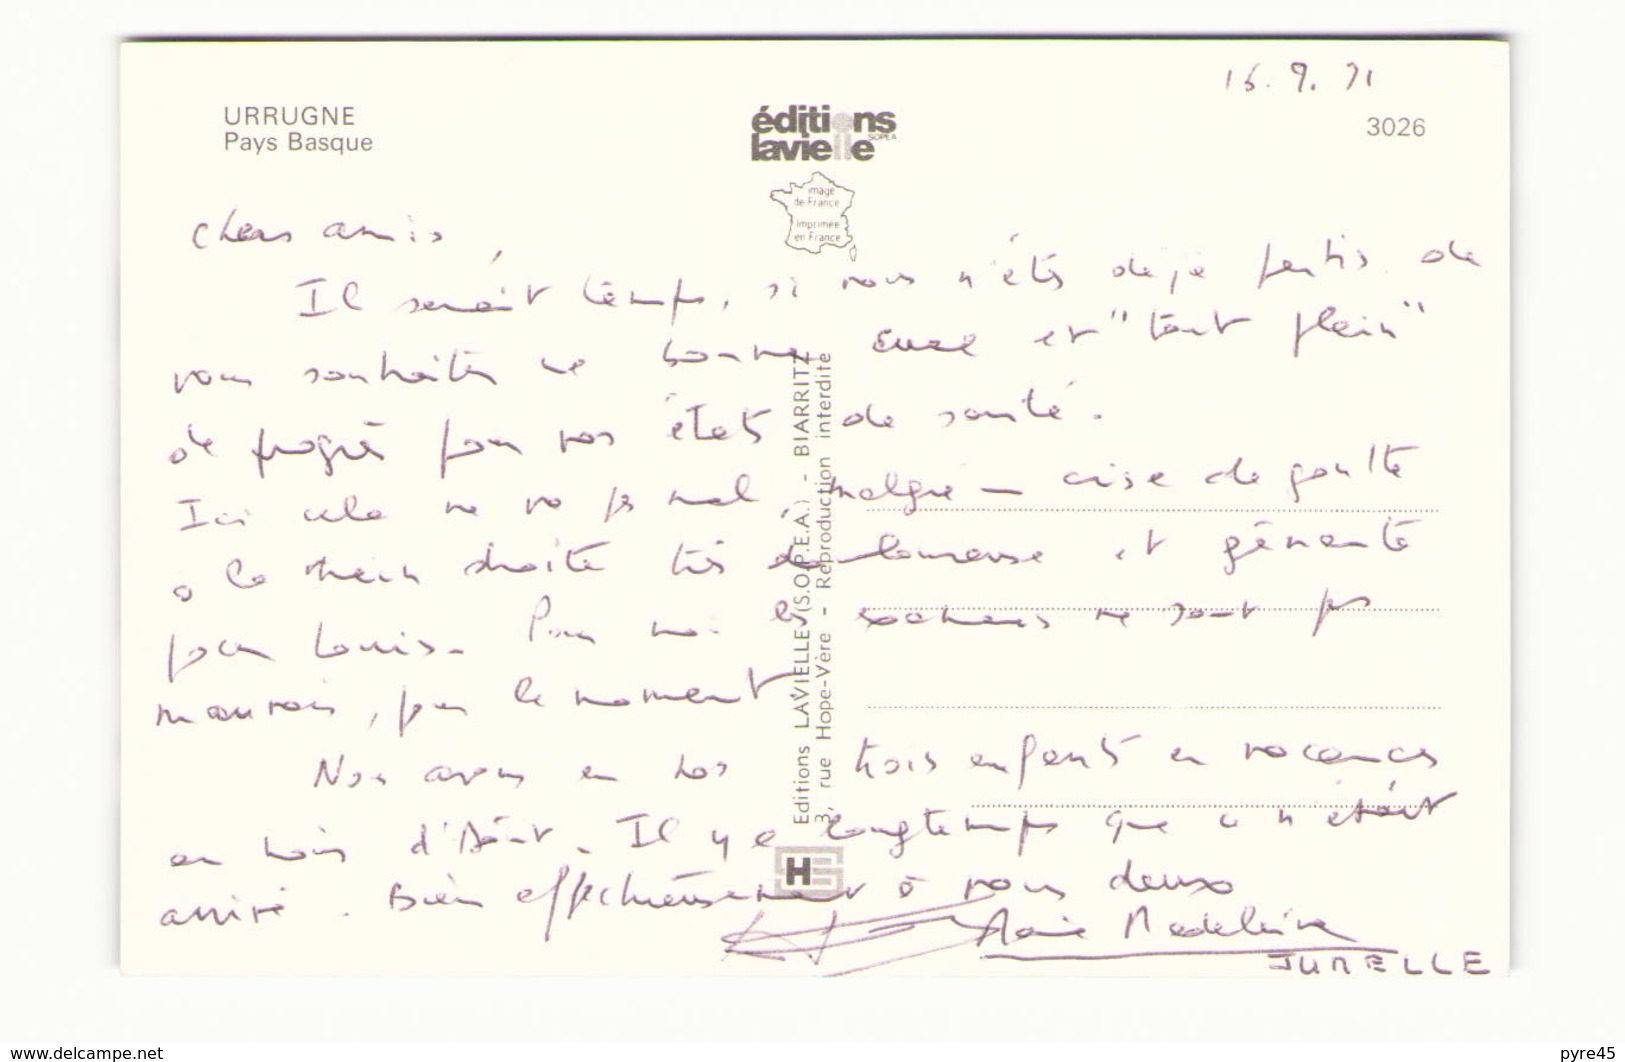 15.9.91
URRUGNE
Pays Basque
éditions
lavielle
SOPEA
3026
image
de France
imprimée
en France
Chers amis,
Il serait temps, si vous n'êtes déjà partis de
vous souhaiter une bonne cure et "tout plein"
de progrès pour vos états de santé.
Ici cela ne va pas mal, malgré une crise de goutte
à la main droite très douloureuse et gênante
pour Louis. Pour moi les examens ne sont pas
mauvais, pour le moment
Nous avons eu nos trois enfants en vacances
au mois d'Août. Il y a longtemps que ce n'était
arrivé. Bien affectueusement à vous deux
Marie Madeleine
JUMELLE
Editions LAVIELLE (S.O.P.E.A.) - BIARRITZ
3, rue Hope-Vère - Reproduction interdite
www.delcampe.net
pyre45